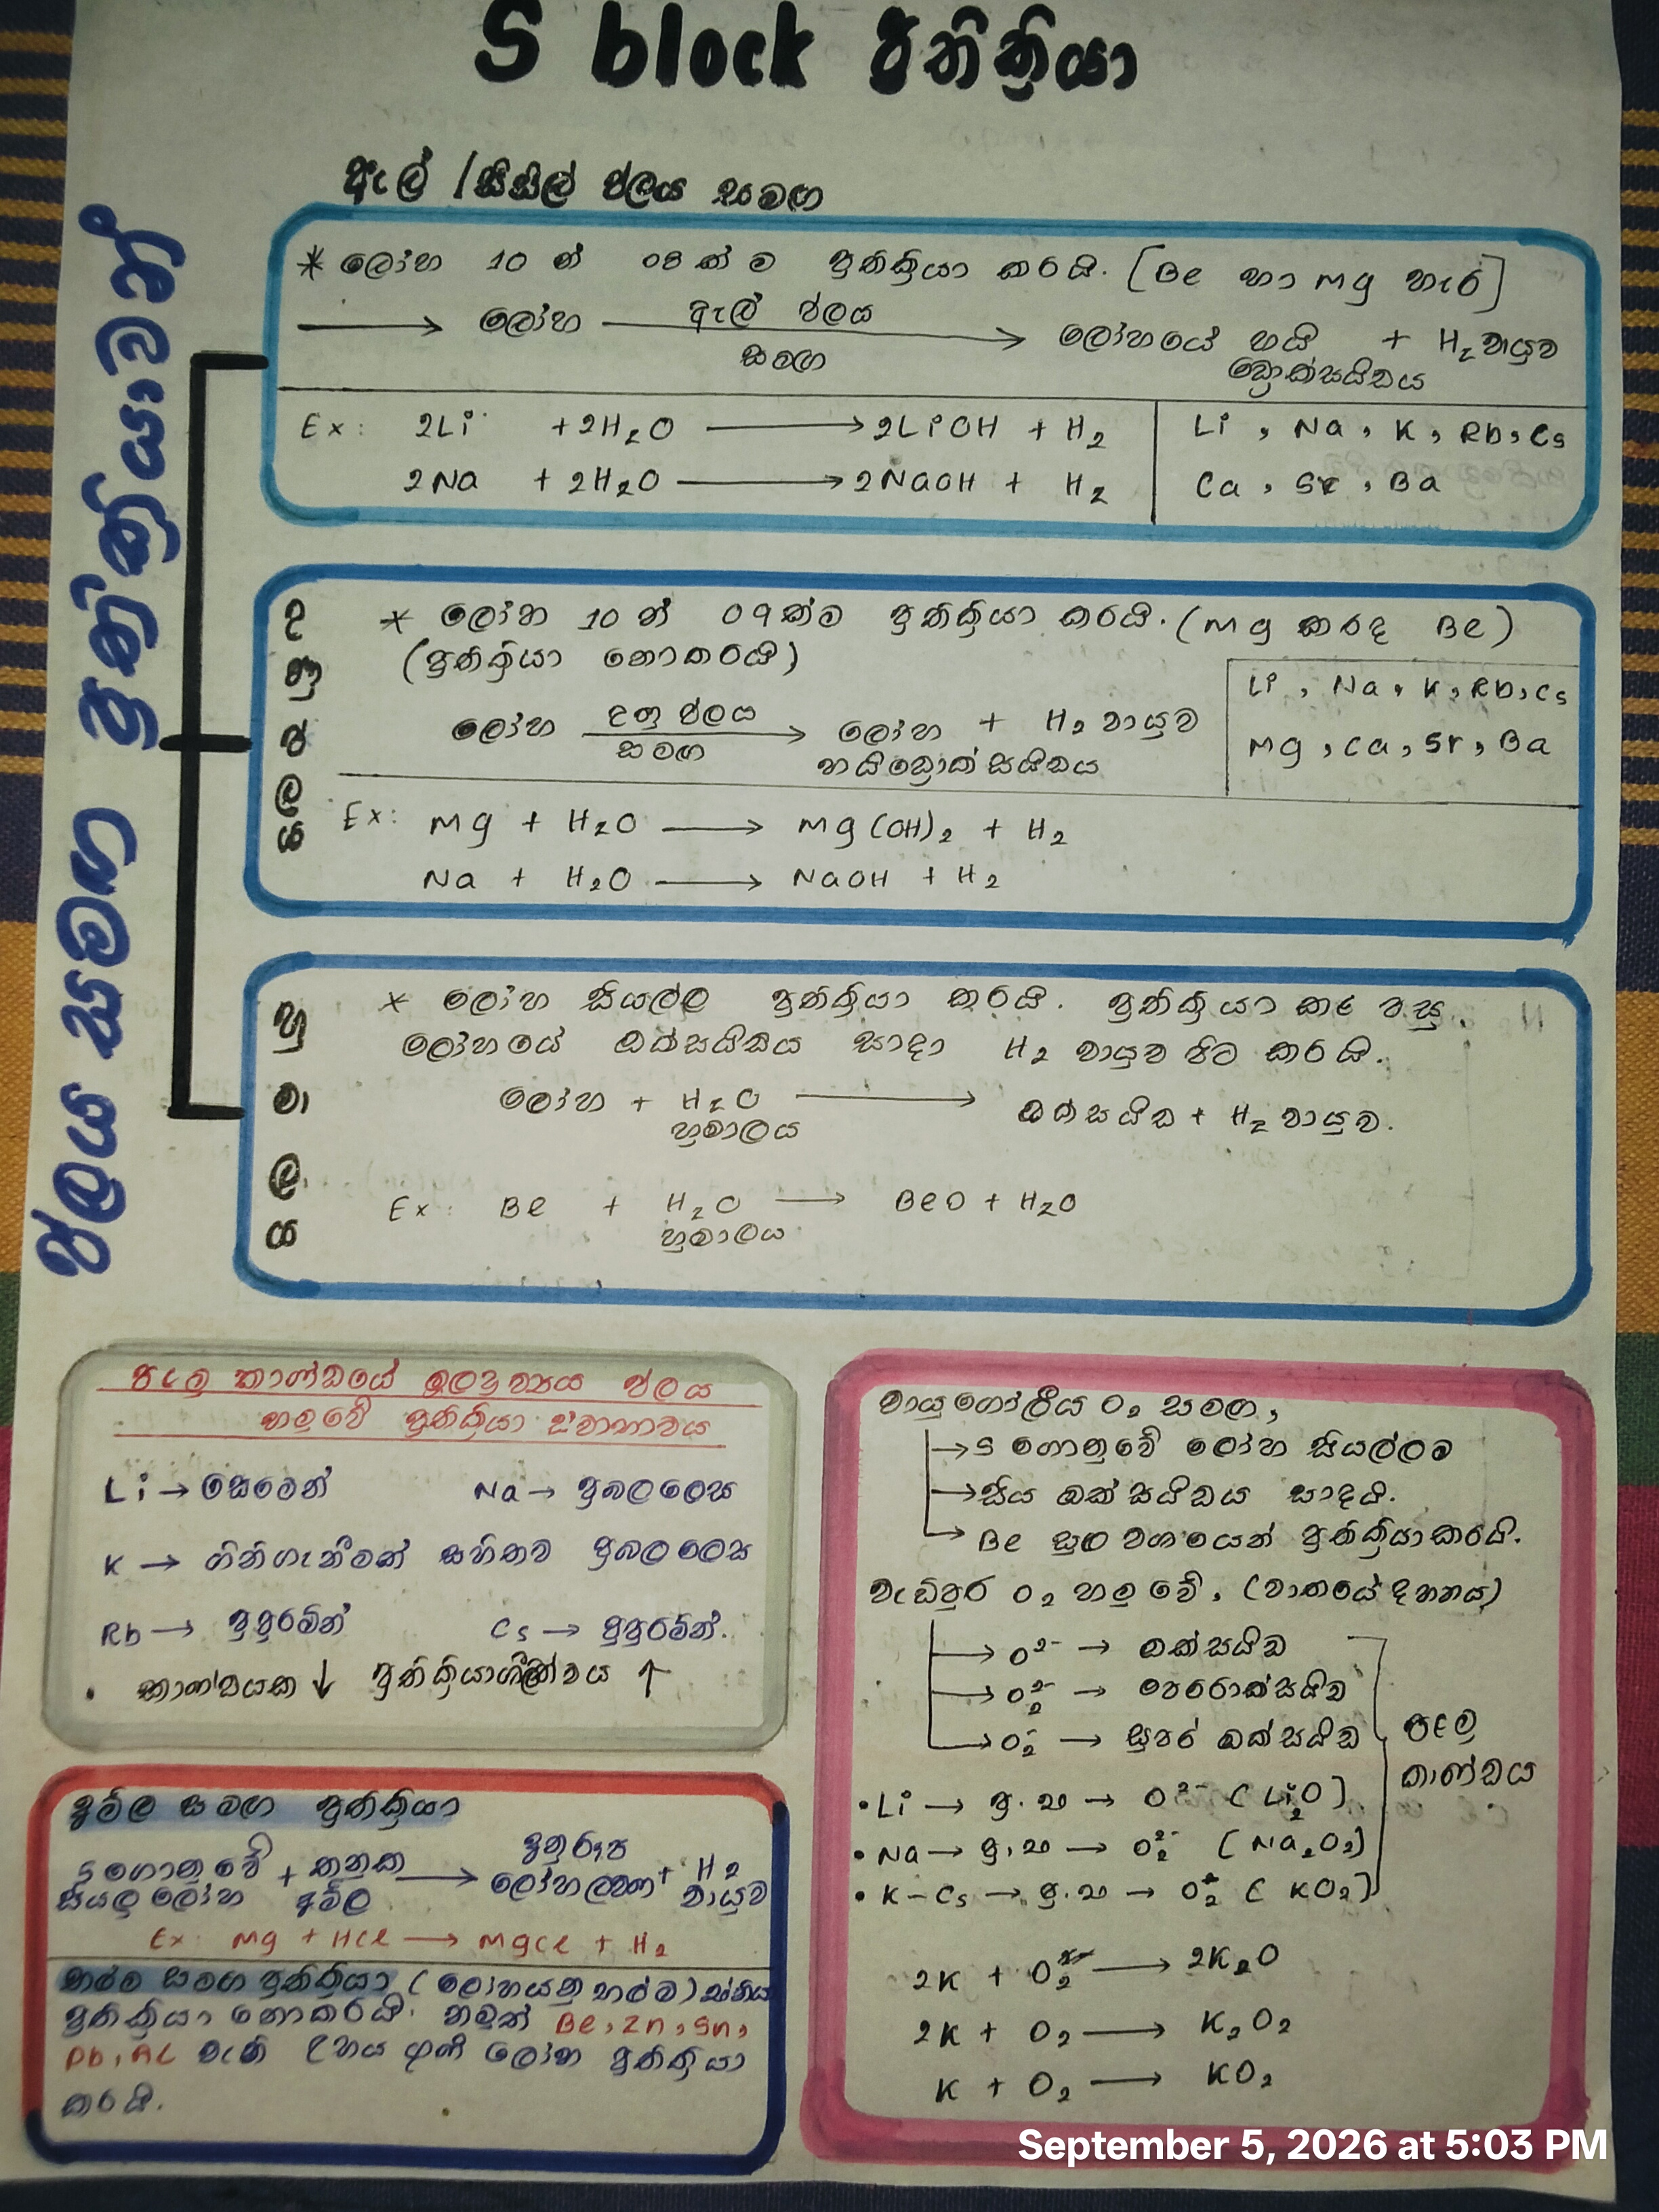 S block ප්‍රතික්‍රියා
ජලය සමග ප්‍රතික්‍රියාවන්
ඇල් / සිසිල් ජලය සමග
* ලෝහ 10 න් 08 ක් ම ප්‍රතික්‍රියා කරයි. [Be හා Mg හැර]
→ ලෝහ ඇල් ජලය සමග → ලෝහයේ හයිඩ්‍රොක්සයිඩය + H₂ වායුව
Ex: 2Li + 2H₂O → 2LiOH + H₂
2Na + 2H₂O → 2NaOH + H₂
Li, Na, K, Rb, Cs
Ca, Sr, Ba
උණු ජලය
* ලෝහ 10 න් 09ක්ම ප්‍රතික්‍රියා කරයි. (Mg කරද Be)
(ප්‍රතික්‍රියා නොකරයි)
Li, Na, K, Rb, Cs
Mg, Ca, Sr, Ba
ලෝහ උනු ජලය සමග → ලෝහ හයිඩ්‍රොක්සයිඩය + H₂ වායුව
Ex: Mg + H₂O → Mg(OH)₂ + H₂
Na + H₂O → NaOH + H₂
හුමාලය
* ලෝහ සියල්ල ප්‍රතික්‍රියා කරයි. ප්‍රතික්‍රියා කළ පසු,
ලෝහයේ ඔක්සයිඩය සාදා H₂ වායුව පිට කරයි.
ලෝහ + H₂O → ඔක්සයිඩ + H₂ වායුව.
හුමාලය
Ex: Be + H₂O → BeO + H₂O
හුමාලය
පළමු කාණ්ඩයේ මූලද්‍රව්‍යය ජලය
හමුවේ ප්‍රතික්‍රියා ස්වාභාවය
Li → සෙමෙන් Na → ප්‍රබල ලෙස
K → ගිනිගැනීමක් සහිතව ප්‍රබල ලෙස
Rb → පුපුරමින් Cs → පුපුරමින්.
• කාණ්ඩයක ↓ ප්‍රතික්‍රියාශීලීත්වය ↑
අම්ල සමග ප්‍රතික්‍රියා
S ගොනුවේ සියලු ලෝහ + තනුක අම්ල → අනුරූප ලෝහ ලවණ + H₂ වායුව
Ex: Mg + HCl → MgCl + H₂
භෂ්ම සමග ප්‍රතික්‍රියා (ලෝහයනු භෂ්ම)
ප්‍රතික්‍රියා නොකරයි. නමුත් Be, Zn, Sn,
Pb, AL වැනි උභය ගුණී ලෝහ ප්‍රතික්‍රියා
කරයි.
වායුගෝලීය O₂ සමග,
→ S ගොනුවේ ලෝහ සියල්ලම
→ සිය ඔක්සයිඩය සාදයි.
→ Be සුලු වශයෙන් ප්‍රතික්‍රියා කරයි.
වැඩිපුර O₂ හමුවේ, (වාතයේ දහනය)
→ O²⁻ → ඔක්සයිඩ
→ O₂²⁻ → පෙරොක්සයිඩ
→ O₂⁻ → සුපර් ඔක්සයිඩ
පළමු කාණ්ඩය
• Li → ප්‍ර.ඵ → O²⁻ (Li₂O)
• Na → ප්‍ර.ඵ → O₂²⁻ (Na₂O₂)
• K-Cs → ප්‍ර.ඵ → O₂⁻ (KO₂)
2K + O₂ → 2K₂O
2K + O₂ → K₂O₂
K + O₂ → KO₂
September 5, 2026 at 5:03 PM